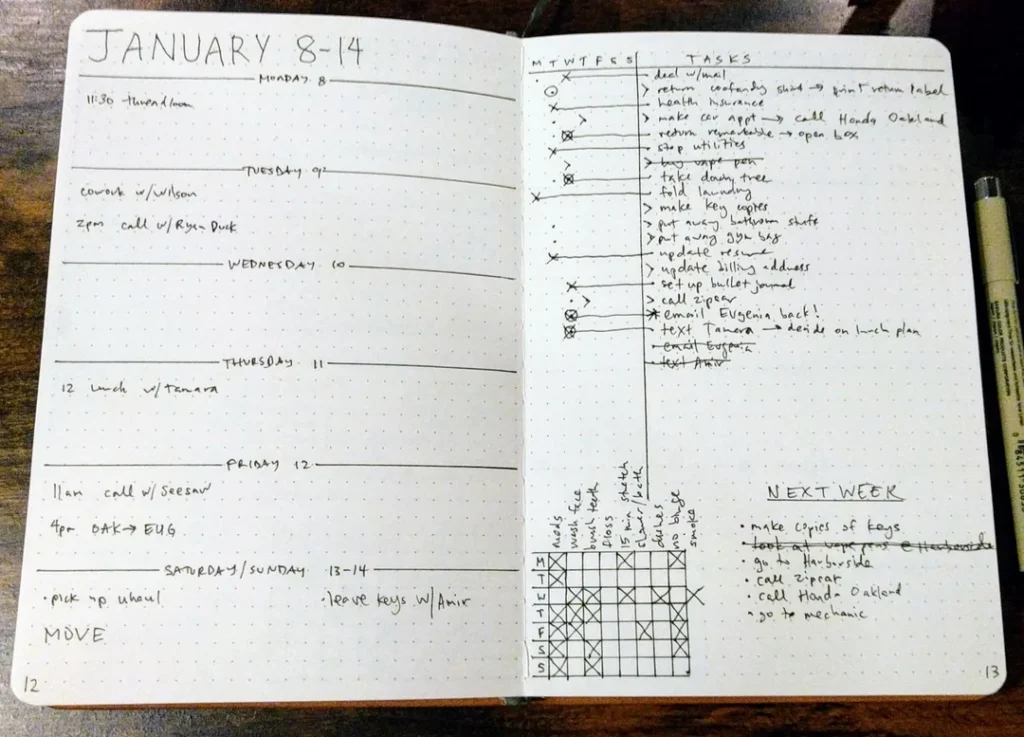 JANUARY 8-14
MONDAY 8
11:30
TUESDAY 9
cowork w/Wilson
2pm call w/Ryan Duck
WEDNESDAY 10
THURSDAY 11
12 lunch w/Tamara
FRIDAY 12
11am call w/Seesaw
4pm OAK → EUG
SATURDAY/SUNDAY 13-14
• pick up uhaul
• leave keys w/Amir
MOVE
12
M T W T F S S TASKS
deal w/mail
> return → print return label
health insurance
> make car appt → call Honda Oakland
return remarkable → open box
stop utilities
> buy vape pen
take down tree
fold laundry
> make key copies
> put away bathroom stuff
> put away gym bag
update resume
> update billing address
set up bullet journal
> call zipcar
* email Eugenia back!
text Tamara → decide on lunch plan
• email Eugenia
• text Amir
meds
wash face
brush teeth
floss
15 min stretch
shower/bath
dishes
no binge
smoke
M
T
W
T
F
S
S
NEXT WEEK
• make copies of keys
• look at vape pens @ Harborside
• go to Harborside
• call zipcar
• call Honda Oakland
• go to mechanic
13